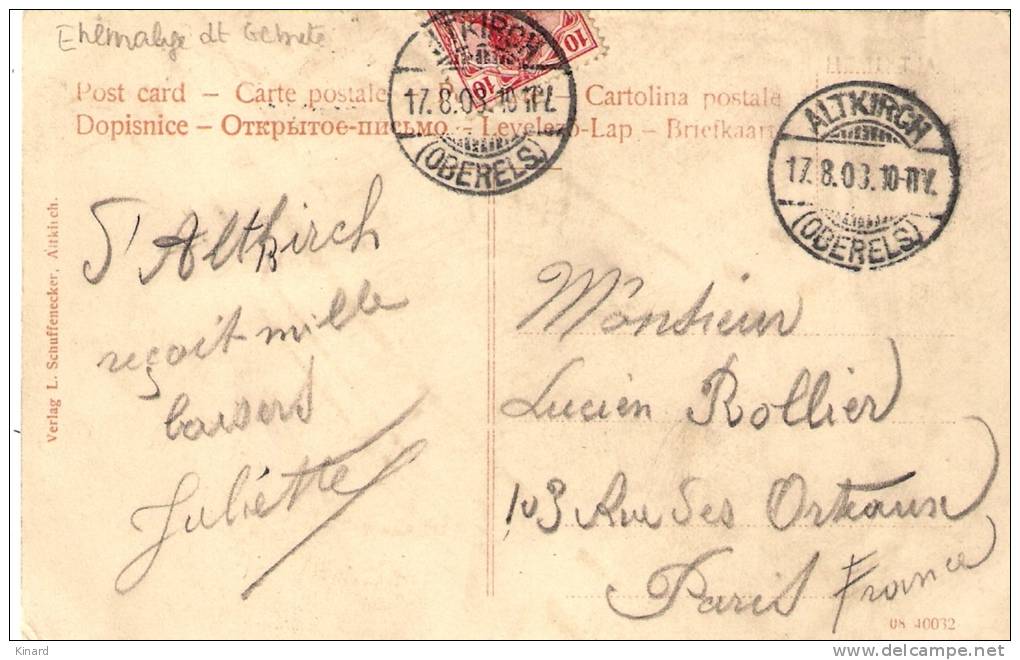 Ehemalige dt Gebiete
Post card – Carte postale
Cartolina postale
Dopisnice – Открытое-письмо – Levelező-Lap – Briefkaart
10 10
ALTKIRCH
(OBERELS.)
ALTKIRCH
17.8.09.10-11V.
(OBERELS.)
D'Altkirch
reçoit mille
baisers
Juliette
Monsieur
Lucien Rollier
103 Rue des Orteaux
Paris France
Verlag L. Schuffenecker, Altkirch.
08 40032
Kinard
delcampe.net